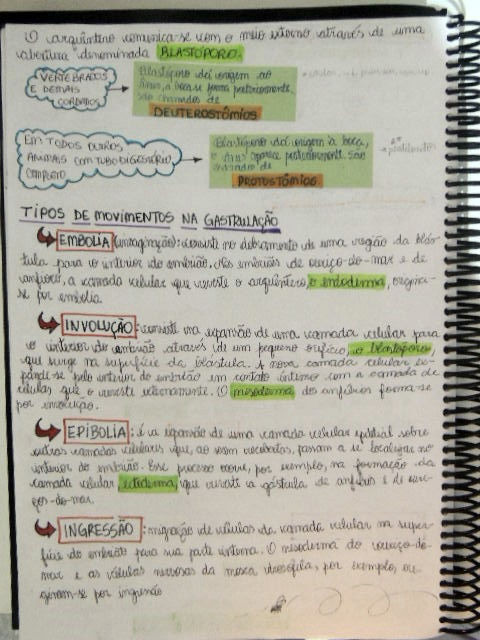 O arquêntero comunica-se com o meio externo através de uma
abertura denominada BLASTÓPORO.
VERTEBRADOS
E DEMAIS
CORDADOS
Blastóporo dá origem ao
ânus, a boca se forma posteriormente,
são chamados de
DEUTEROSTÔMIOS
EM TODOS OUTROS
ANIMAIS COM TUBO DIGESTÓRIO
COMPLETO
Blastóporo dá origem à boca,
o ânus aparece posteriormente. São
chamados de
PROTOSTÔMIOS
TIPOS DE MOVIMENTOS NA GASTRULAÇÃO
EMBOLIA (invaginação): consiste no dobramento de uma região da blás-
tula para o interior do embrião. Nos embriões de ouriço-do-mar e de
anfioxo, a camada celular que reveste o arquêntero, o endoderma, origina-
se por embolia.
INVOLUÇÃO: consiste na expansão de uma camada celular para
o interior do embrião através de um pequeno orifício, o blastóporo,
que surge na superfície da blástula. A nova camada celular ex-
pande-se pelo interior do embrião em contato íntimo com a camada de
células que o reveste externamente. O mesoderma dos anfíbios forma-se
por involução.
EPIBOLIA: é a expansão de uma camada celular epitelial sobre
outras camadas celulares que, ao serem recobertas, passam a se localizar no
interior do embrião. Esse processo ocorre, por exemplo, na formação da
camada celular ectoderma, que reveste a gástrula de anfíbios e de ouri-
ços-do-mar.
INGRESSÃO: migração de células da camada celular na super-
fície do embrião para sua parte interna. O mesoderma do ouriço-do-
mar e as células nervosas da mosca drosófila, por exemplo, ori-
ginam-se por ingressão